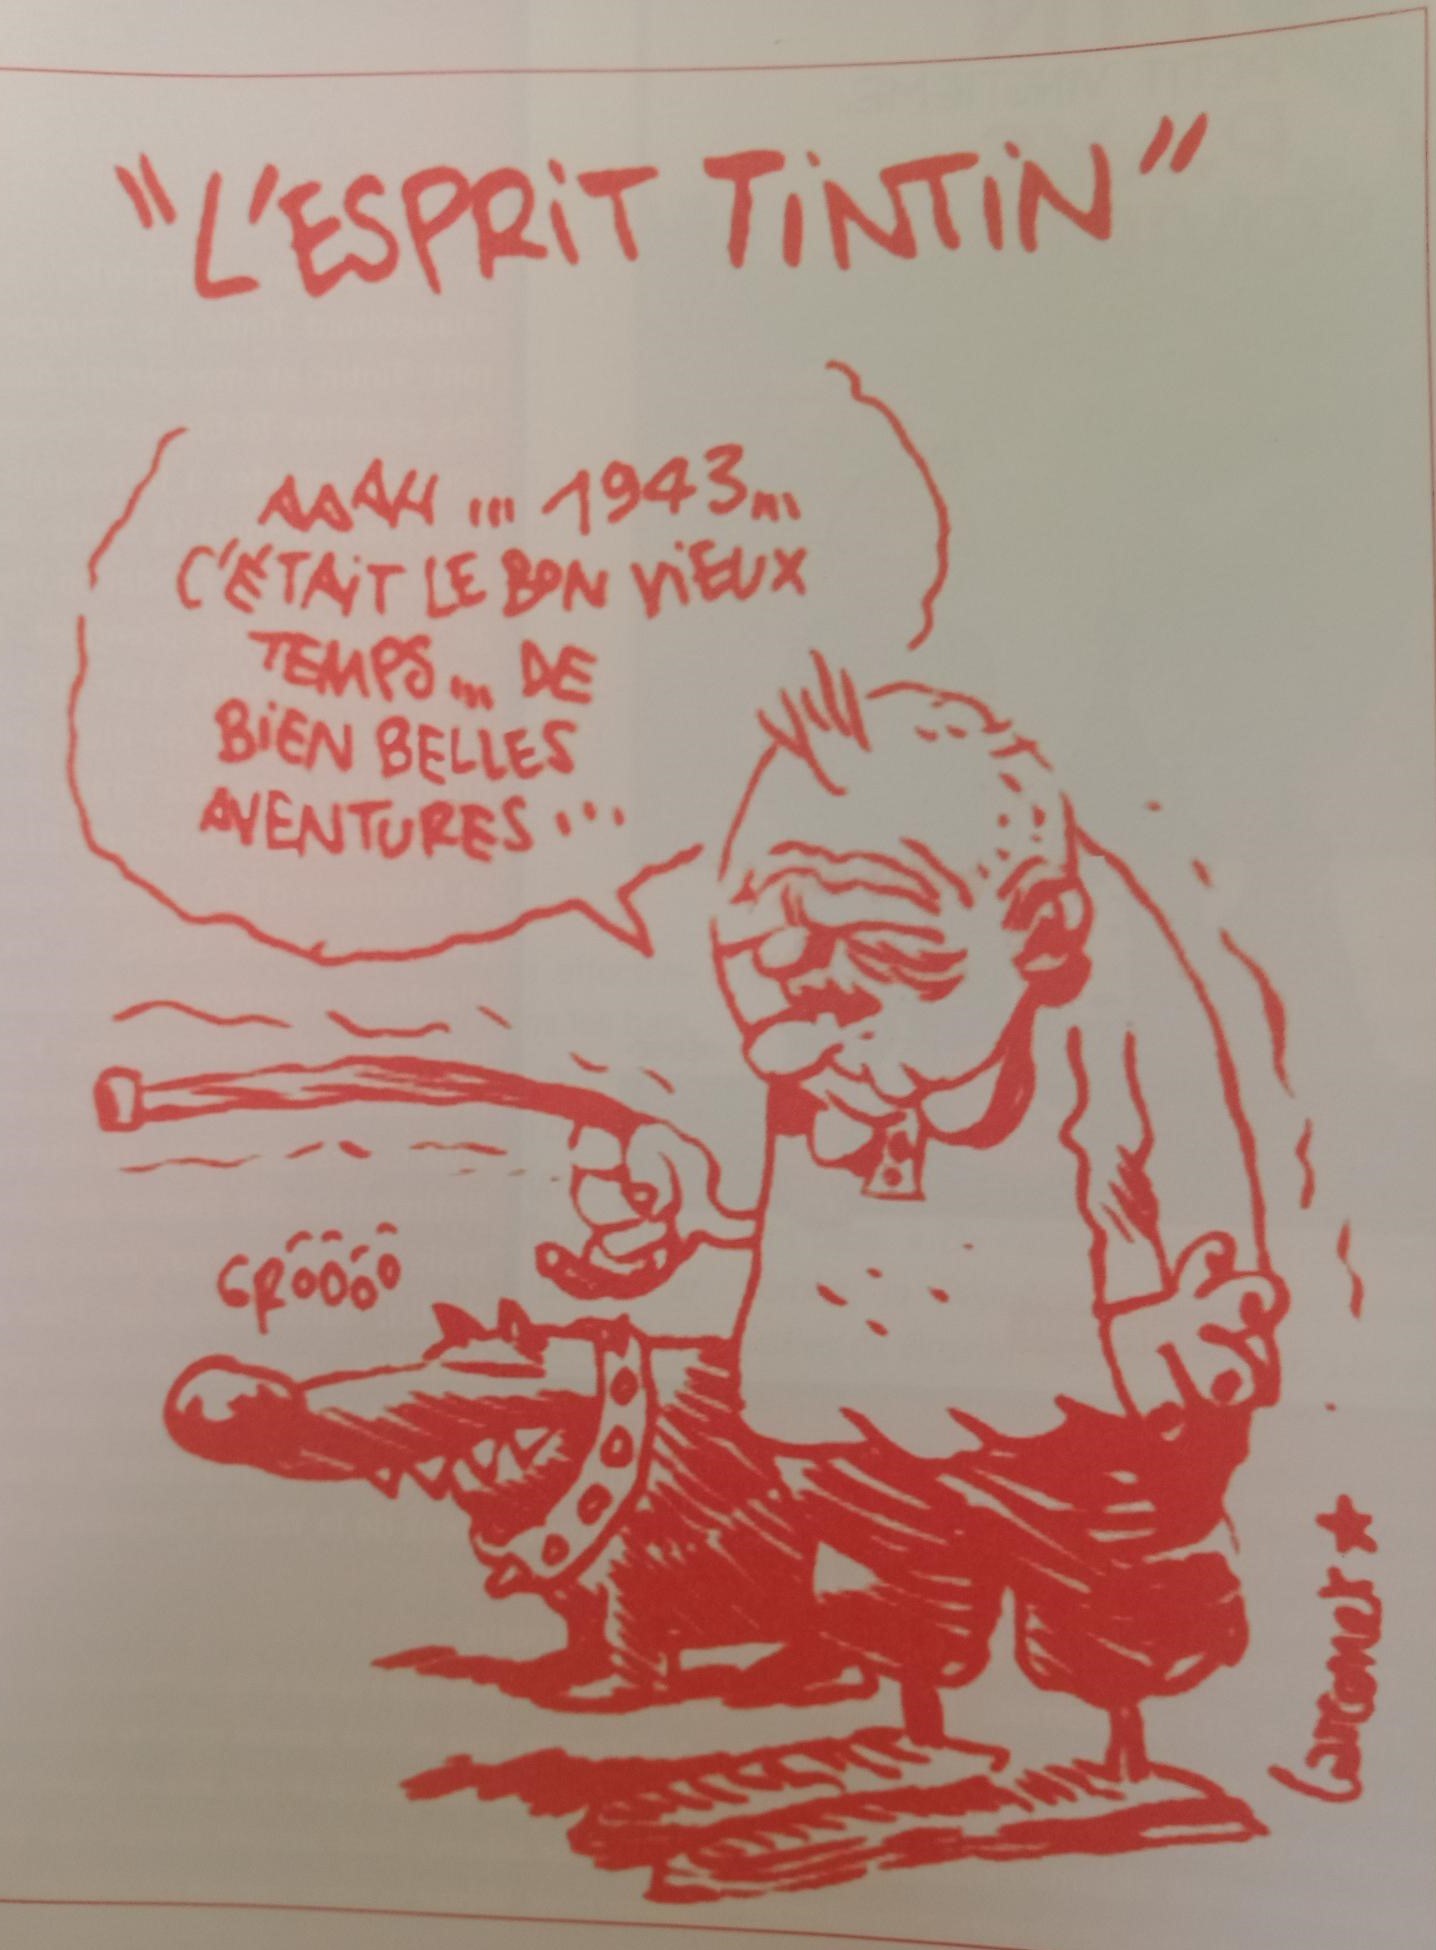 "L'ESPRIT TINTIN"
AAAH ... 1943...
C'ÉTAIT LE BON VIEUX
TEMPS... DE
BIEN BELLES
AVENTURES...
GRÔÔÔÔ